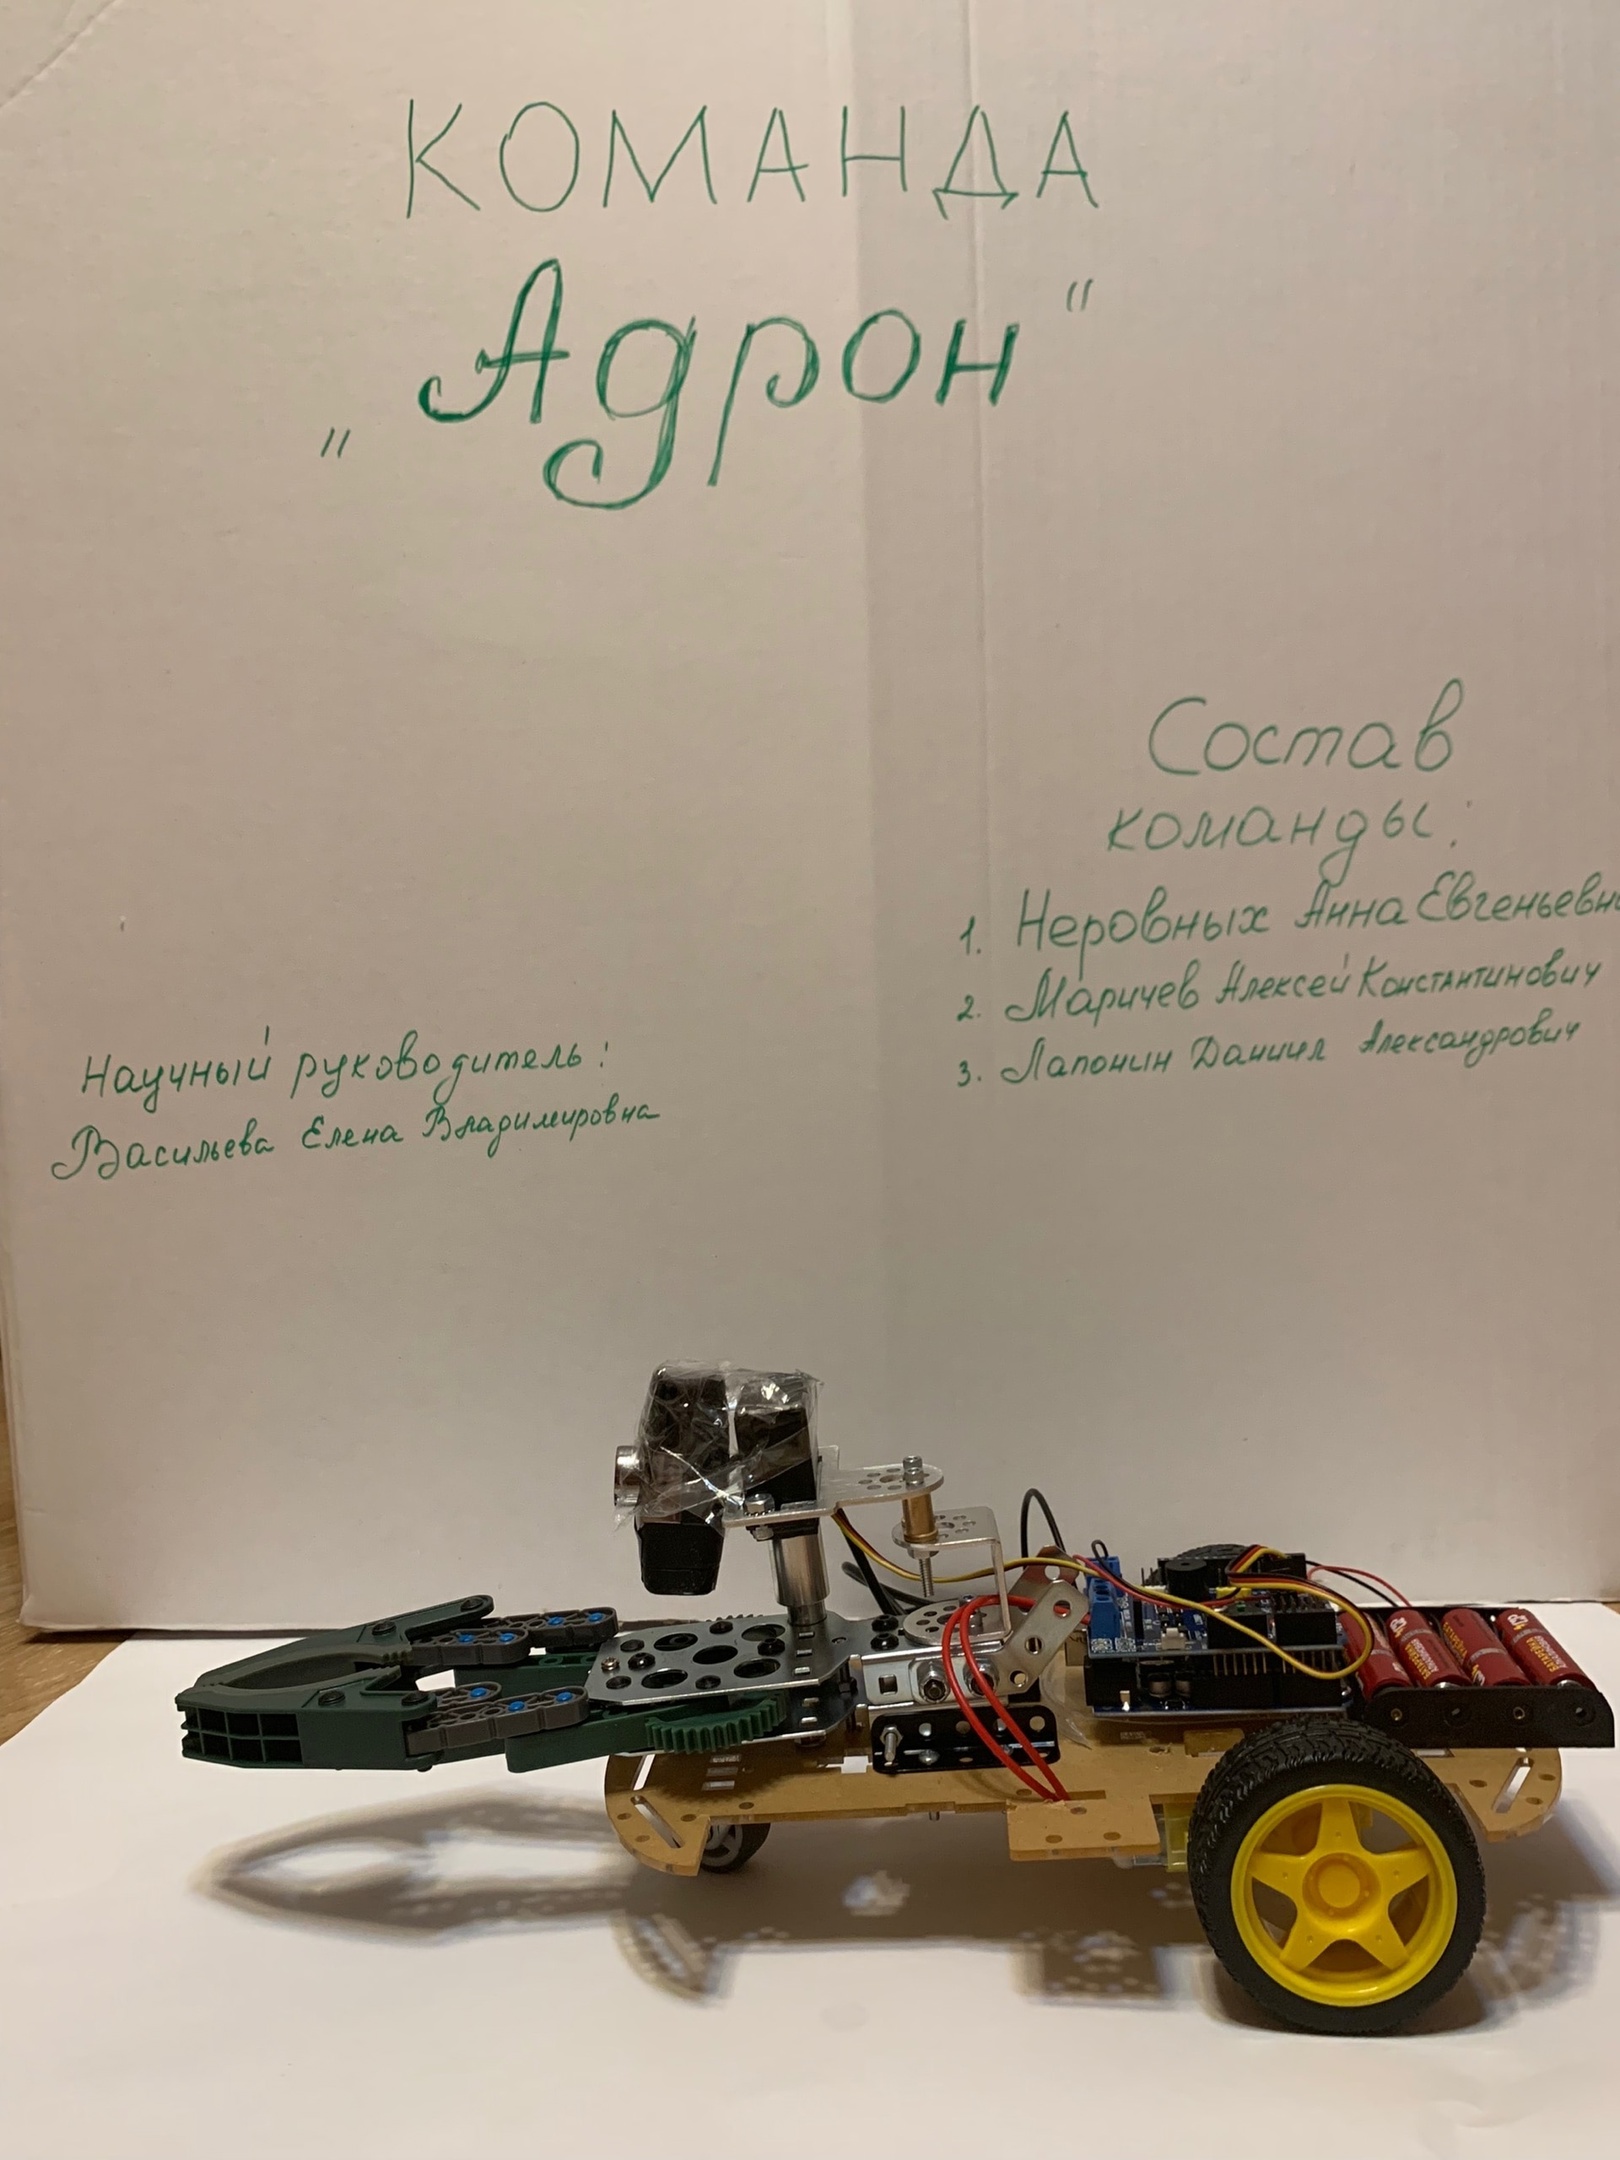 КОМАНДА
„Адрон“
Состав
команды:
1. Неровных Анна Евгеньевна
2. Маричев Алексей Константинович
3. Лапонин Даниил Александрович
Научный руководитель:
Васильева Елена Владимировна